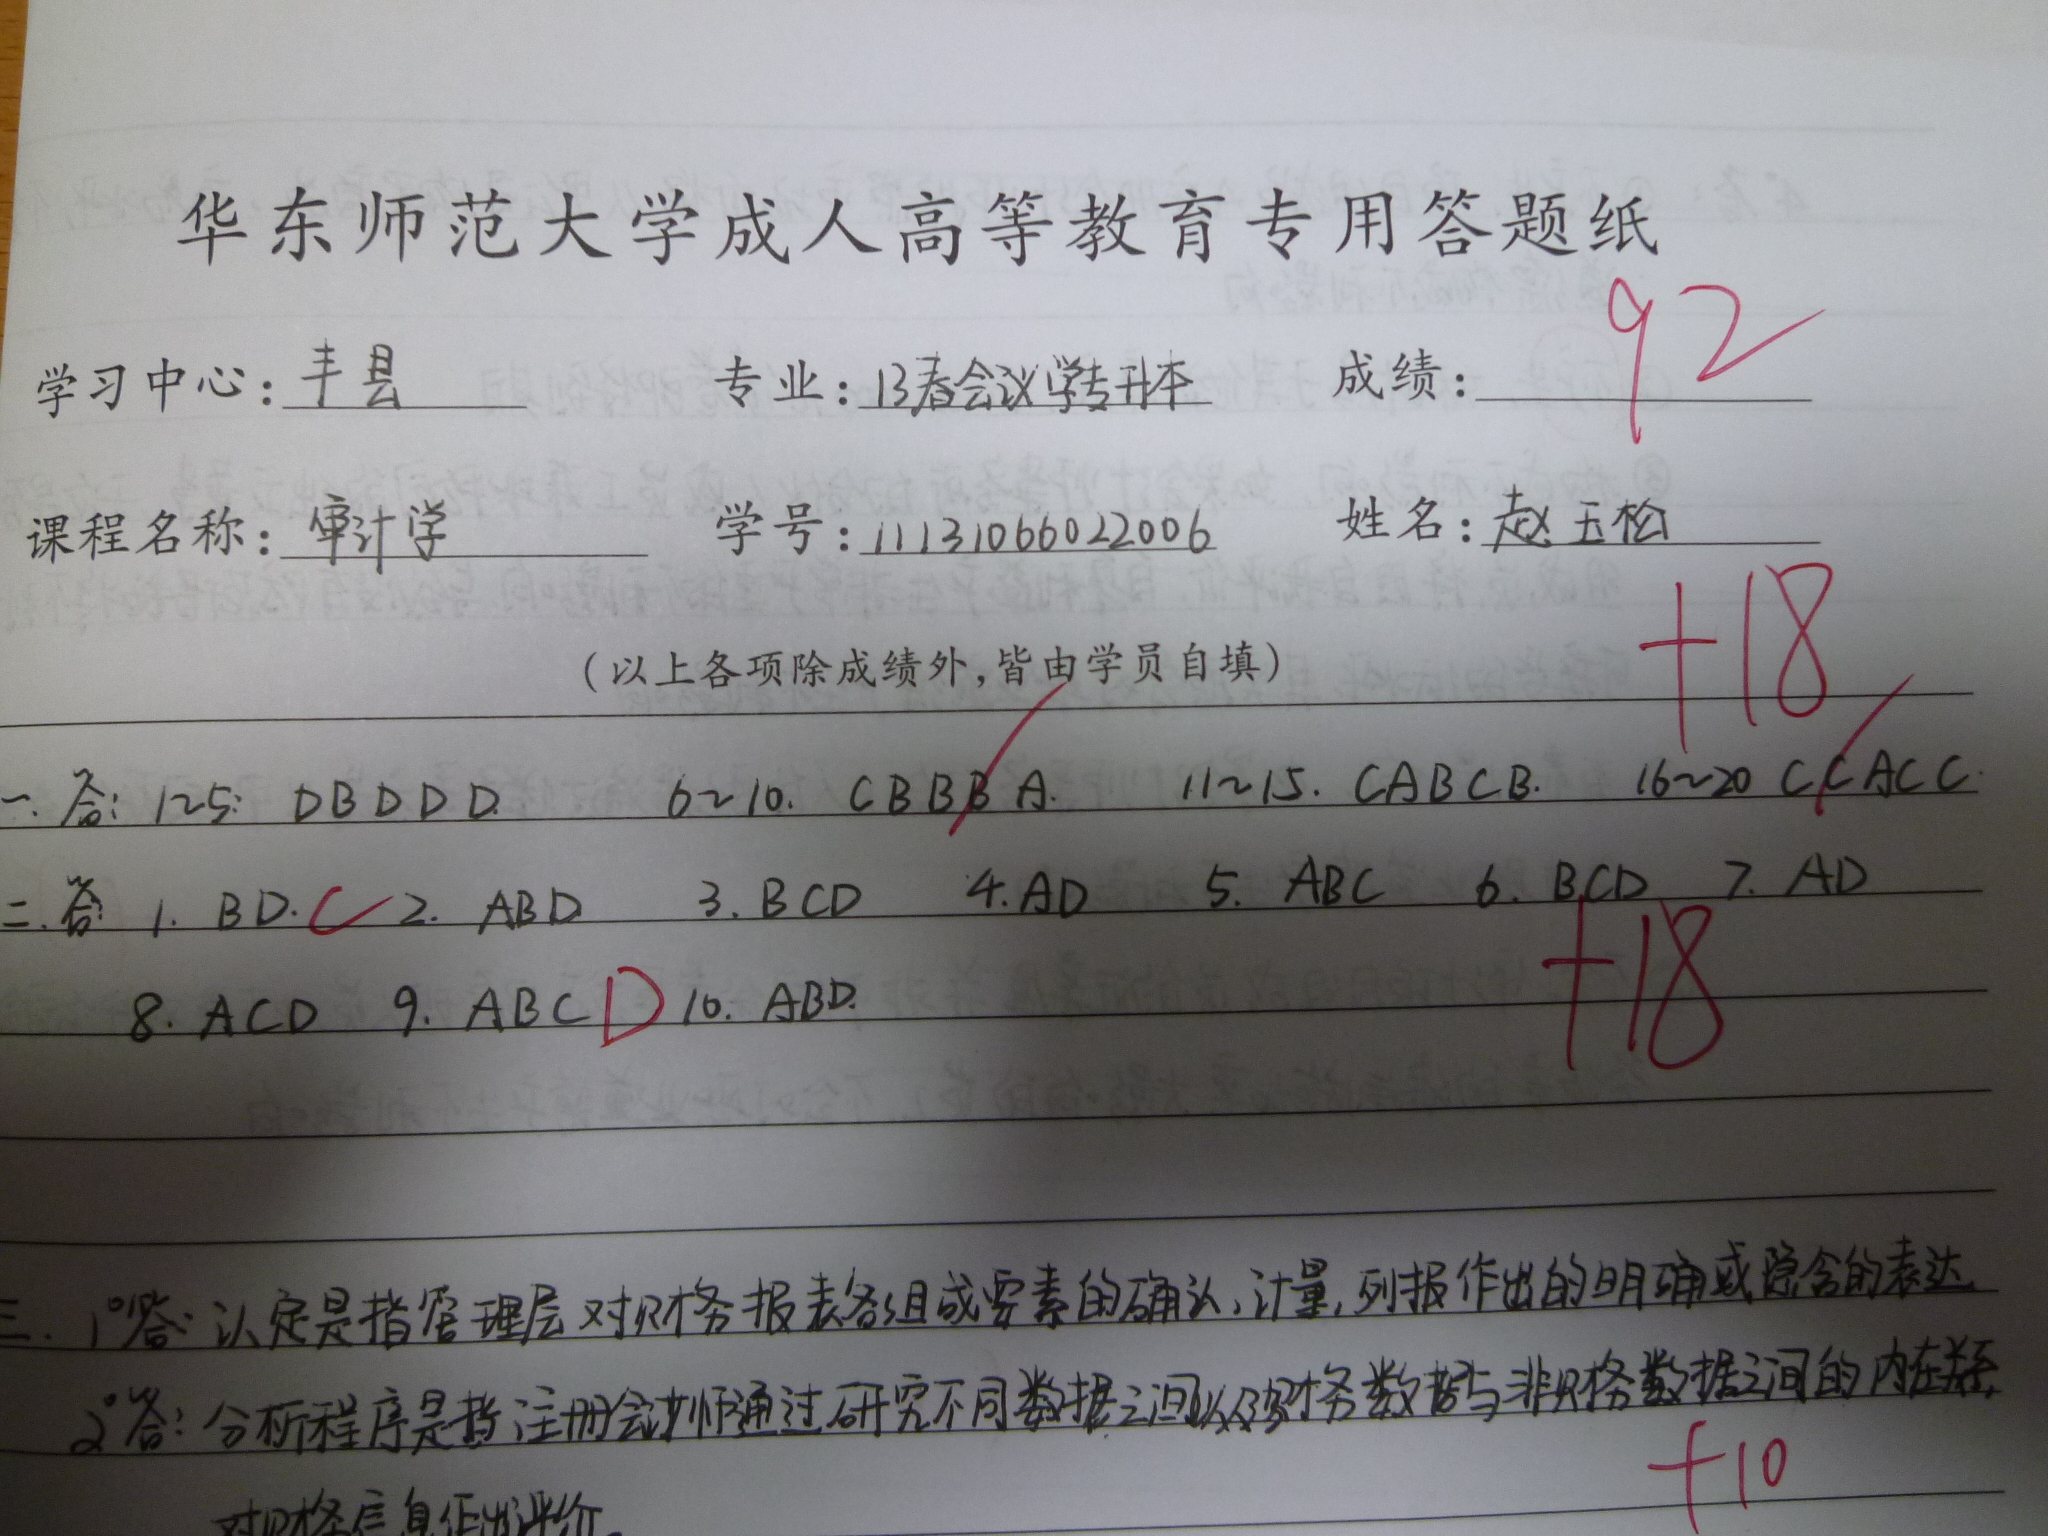 华东师范大学成人高等教育专用答题纸
92
学习中心: 丰县 专业: 13春会议学专升本 成绩:
课程名称: 审计学 学号: 11131066022006 姓名: 赵玉松
+18
(以上各项除成绩外,皆由学员自填)
一. 答: 1~5: DBDDD. 6~10. CBBBA. 11~15. CABCB. 16~20 CCACC.
二. 答 1. BD. C 2. ABD 3. BCD 4. AD 5. ABC 6. BCD 7. AD
+18
8. ACD 9. ABC D 10. ABD.
三. 1°答: 认定是指管理层对财务报表各组成要素的确认,计量,列报作出的明确或隐含的表达
2°答: 分析程序是指注册会计师通过研究不同数据之间以及财务数据与非财务数据之间的内在关系,
+10
对财务信息作出评价。